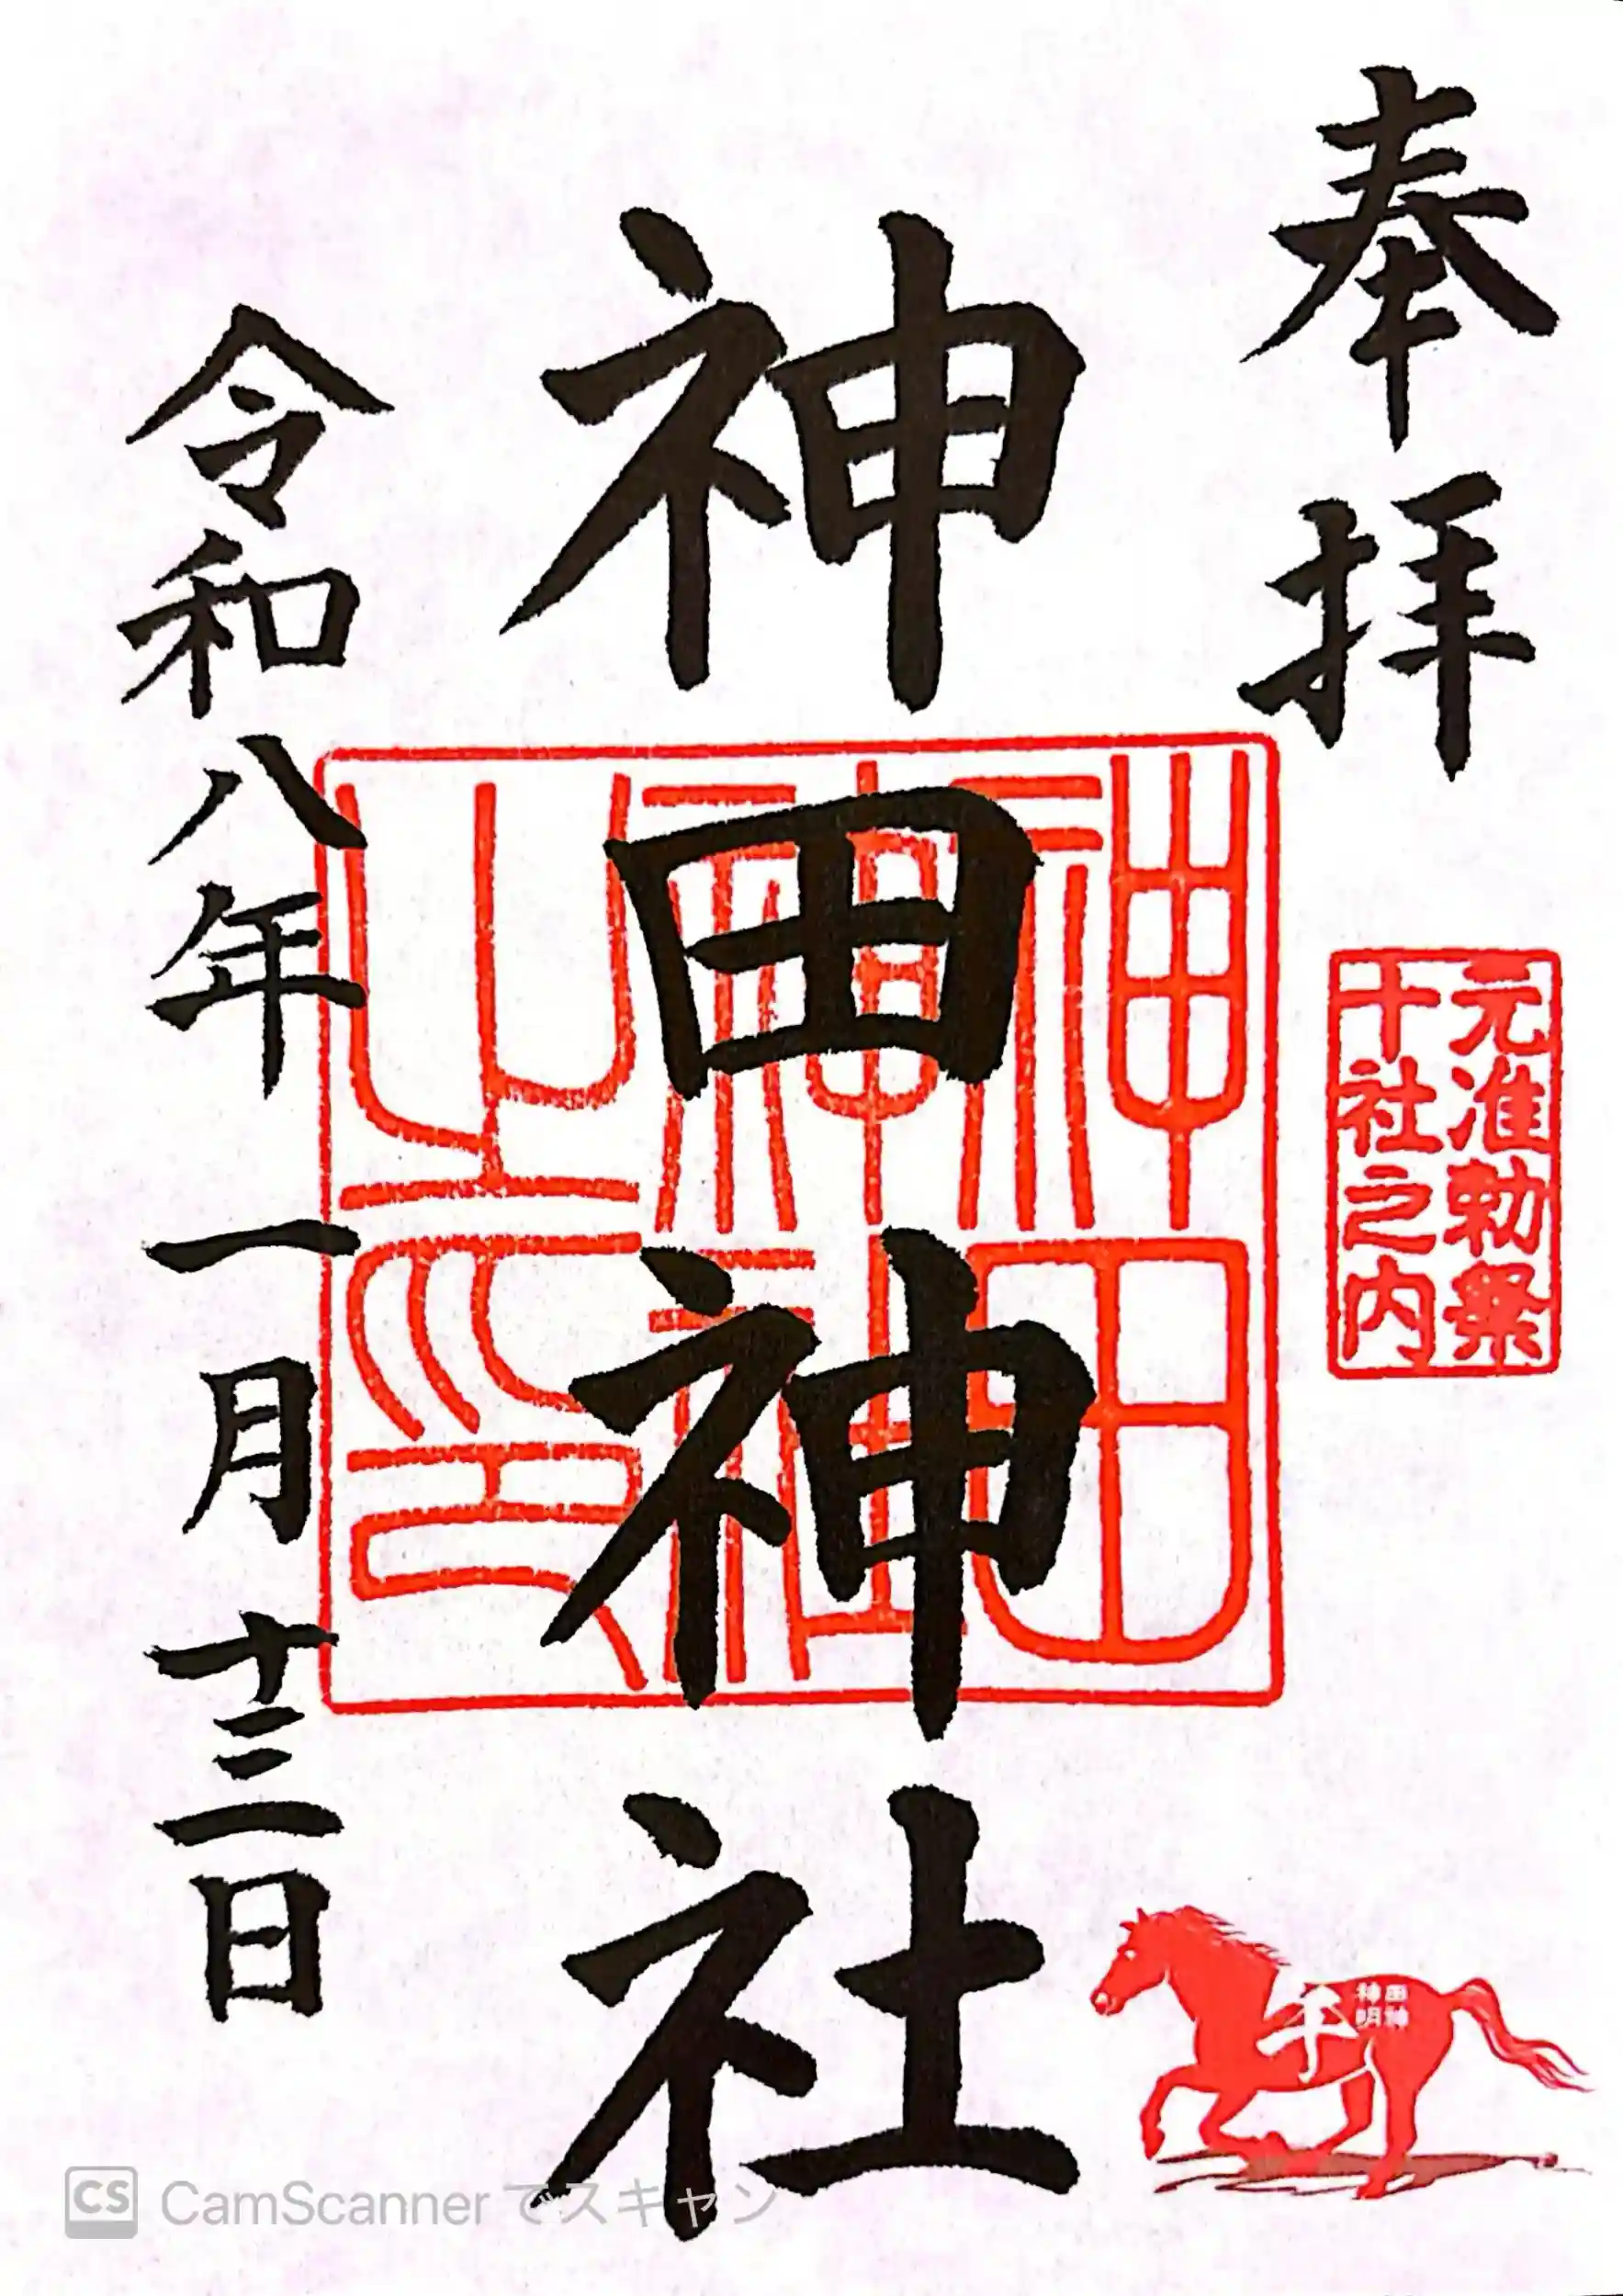 奉拝
元准勅祭
十社之内
神田神社
神田
神社
之印
令和八年 一月 十三日
午
神田神明
CamScanner でスキャン